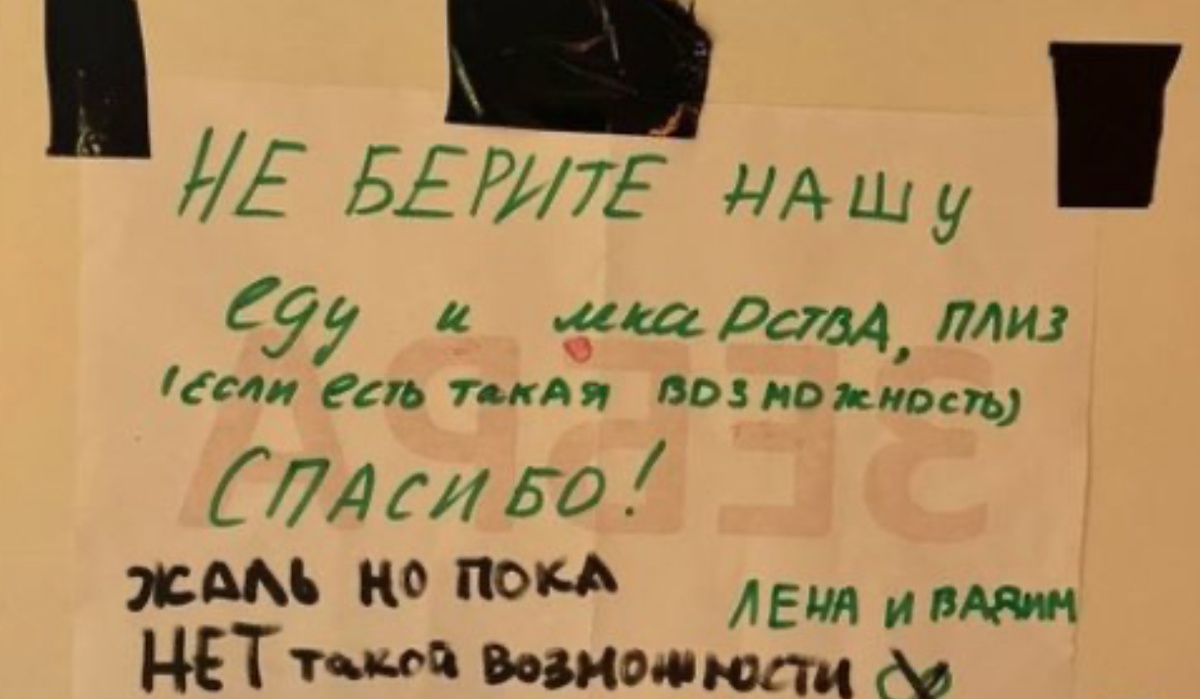 НЕ БЕРИТЕ НАШУ
еду и лекаРствА, ПЛИЗ
(если есть такая возможность)
СПАСИБО!
ЛЕНА И ВАДИМ
ЖАЛЬ НО ПОКА
НЕТ такой возможности
ЗЕБРА